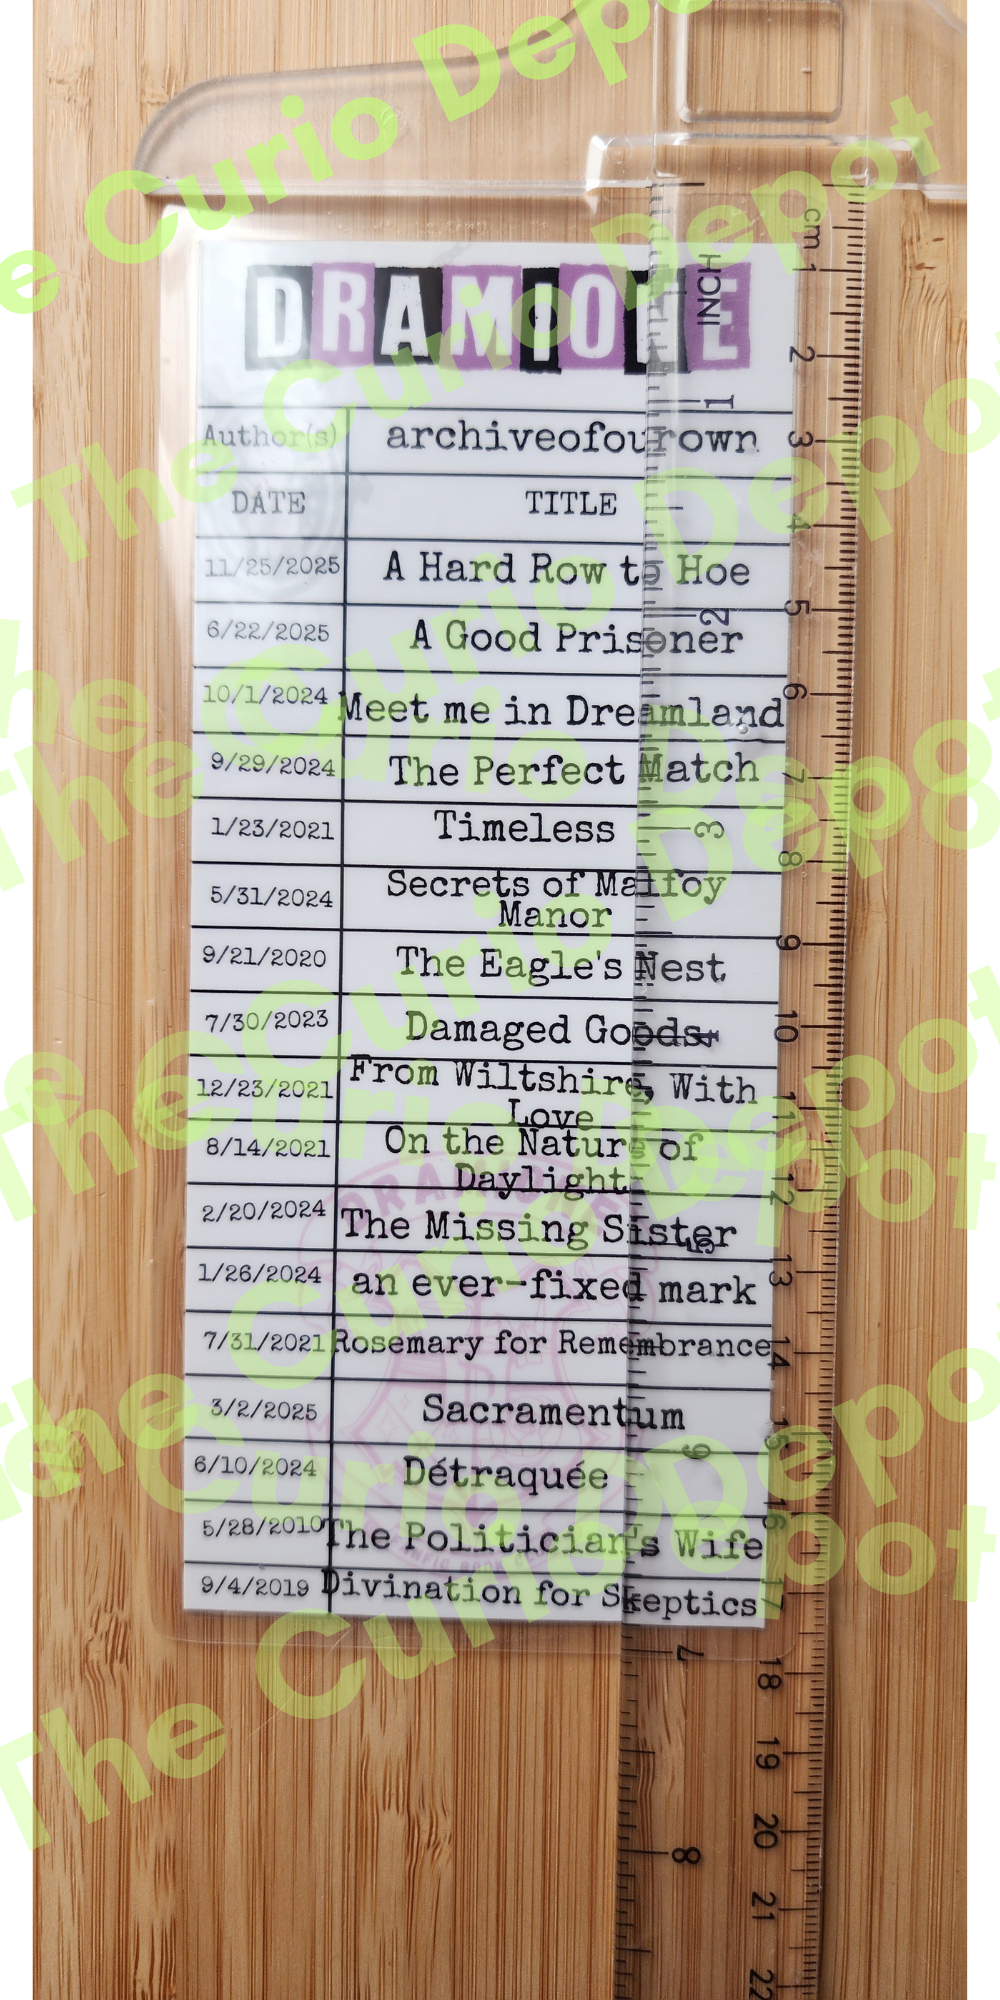 The Curio Depot
DRAMIONE
Author(s) archiveofourown
DATE TITLE
11/25/2025 A Hard Row to Hoe
6/22/2025 A Good Prisoner
10/1/2024 Meet me in Dreamland
9/29/2024 The Perfect Match
1/23/2021 Timeless
5/31/2024 Secrets of Malfoy
Manor
9/21/2020 The Eagle's Nest
7/30/2023 Damaged Goods
12/23/2021 From Wiltshire, With
Love
8/14/2021 On the Nature of
Daylight
2/20/2024 The Missing Sister
1/26/2024 an ever-fixed mark
7/31/2021 Rosemary for Remembrance
3/2/2025 Sacramentum
6/10/2024 Détraquée
5/28/2010 The Politician's Wife
9/4/2019 Divination for Skeptics
INCH
1
2
3
4
5
6
7
8
cm
1
2
3
4
5
6
7
8
9
10
11
12
13
14
15
16
17
18
19
20
21
22
The Curio Depot
The Curio Depot
The Curio Depot
The Curio Depot
The Curio Depot
The Curio Depot